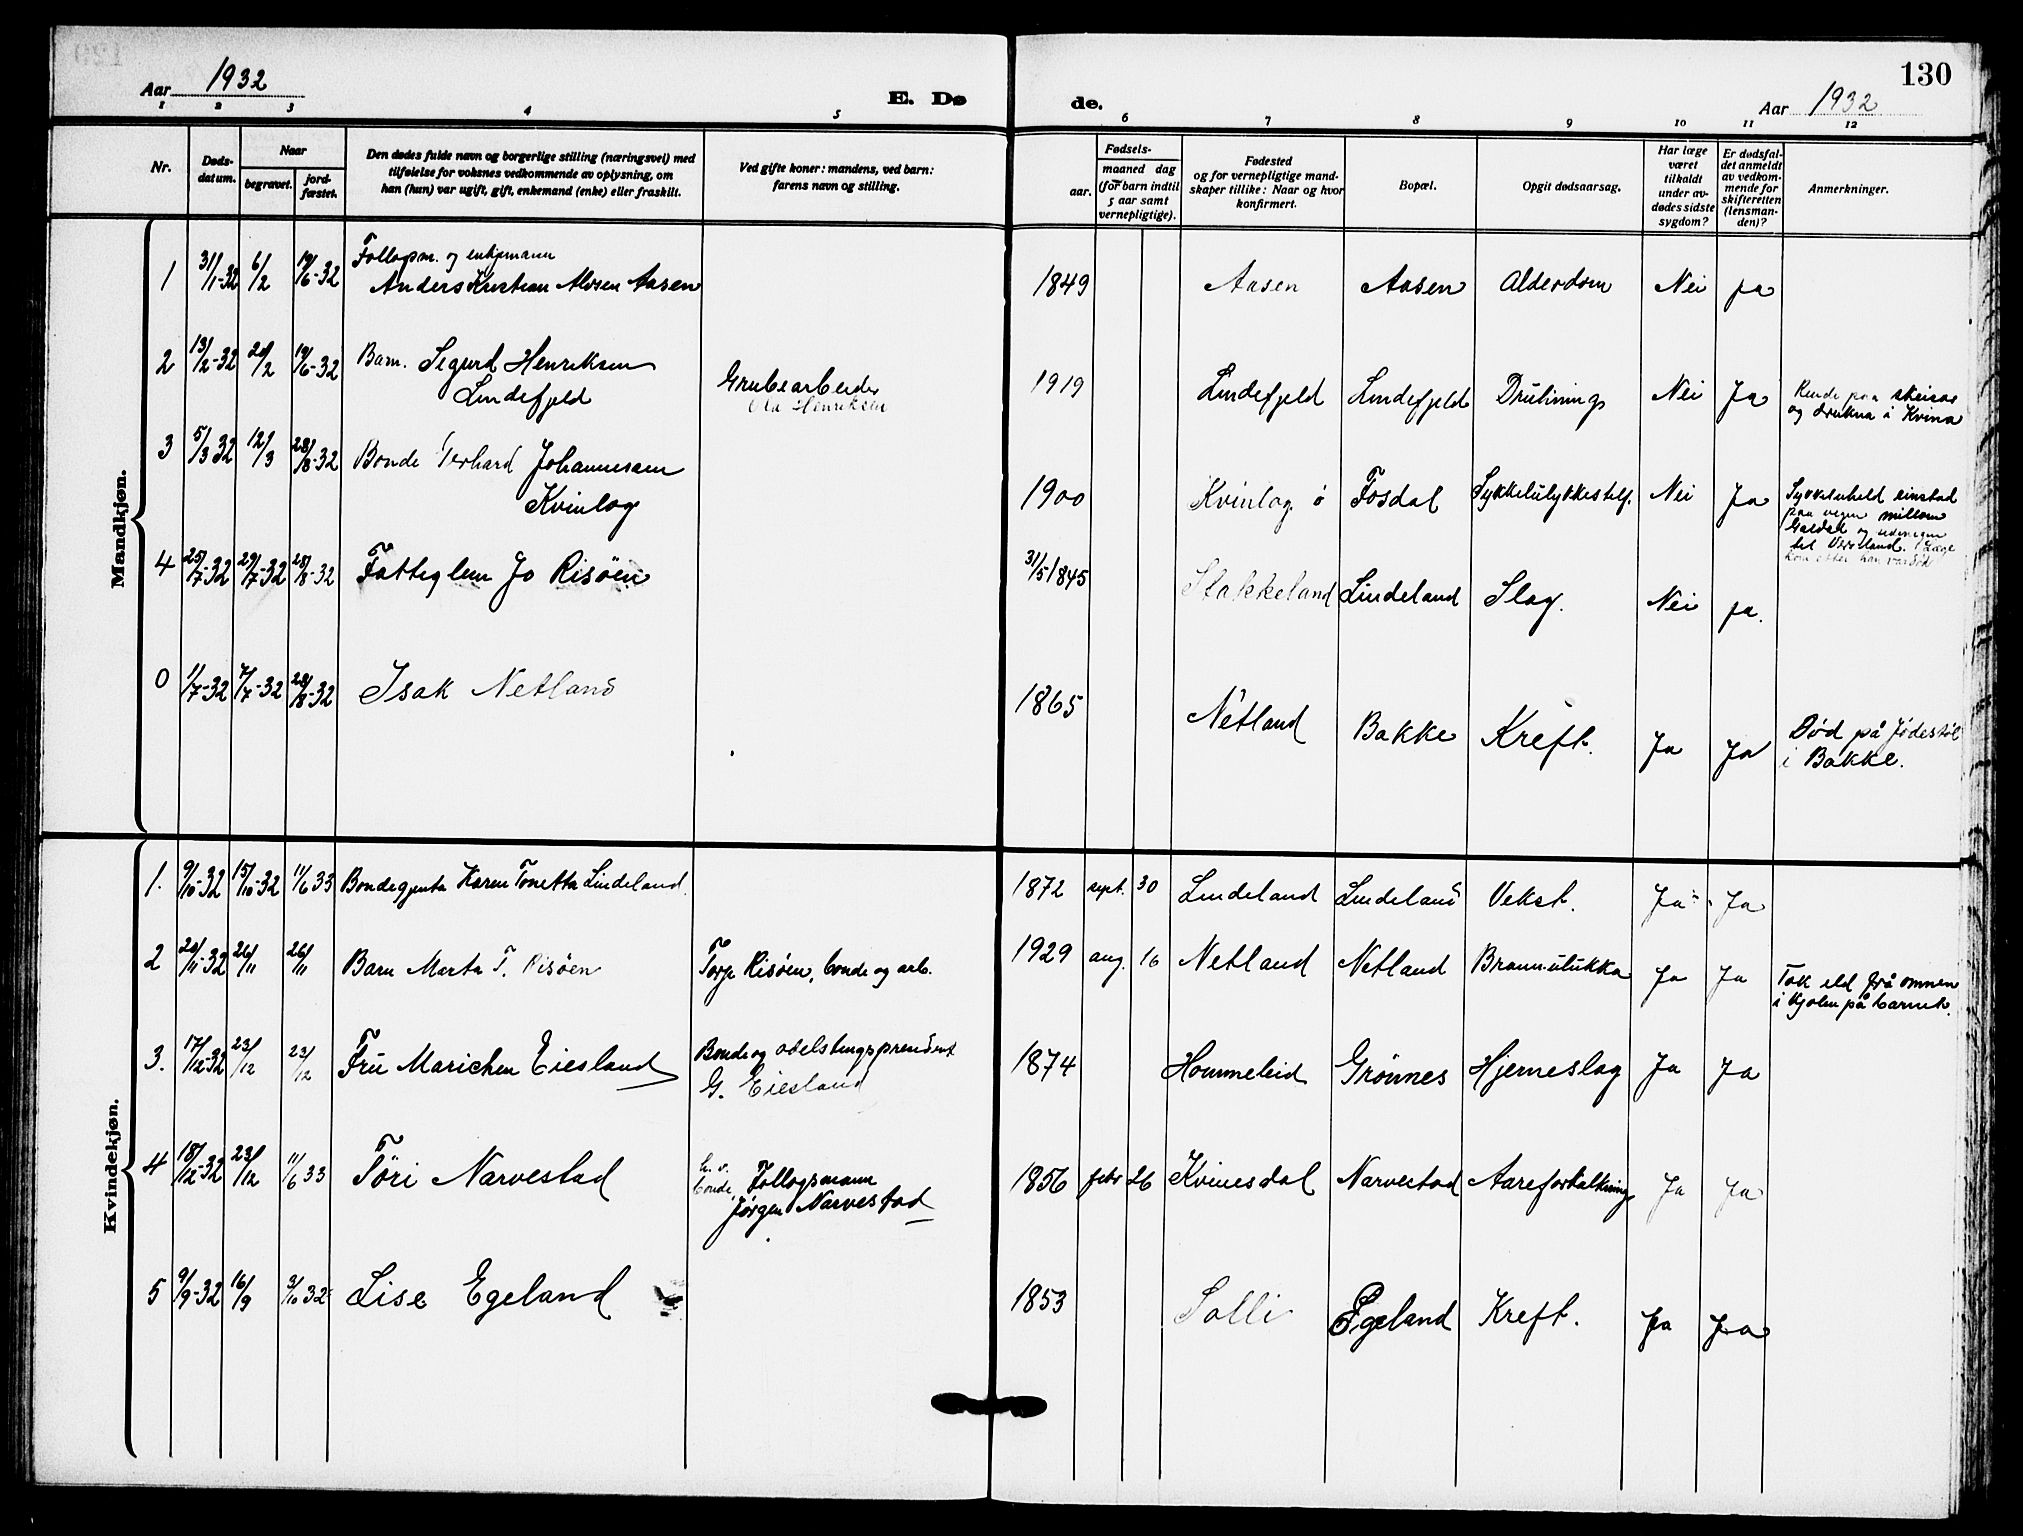 130
Aar 1932
E. Dø
de.
Aar 1932
1 2 3 4 5 6 7 8 9 10 11 12
Nr.
Døds-
datum.
Naar
begravet.
jord-
fæstet.
Den dødes fulde navn og borgerlige stilling (næringsvei) med
tilføielse for voksnes vedkommende av oplysning, om
han (hun) var ugift, gift, enkemand (enke) eller fraskilt.
Ved gifte koner: mandens, ved barn:
farens navn og stilling.
Fødsels-
aar.
maaned dag
(for barn indtil
5 aar samt
vernepligtige).
Fødested
og for vernepligtige mand-
skaper tillike: Naar og hvor
konfirmert.
Bopæl.
Opgit dødsaarsag.
Har læge
været
tilkaldt
under av-
dødes sidste
sygdom?
Er dødsfal-
det anmeldt
av vedkom-
mende for
skifteretten
(lensman-
den)?
Anmerkninger.
Mandkjøn.
1 31/1-32 6/2 19/6-32 Follogsm. og enkjemann
Anders Kristian Aasen 1849 Aasen Aasen Alderdom Nei ja
2 13/2-32 20/2 19/6-32 Barn. Sigurd Henriksen
Lindefjeld Grubearbeider
Ola Henriksen 1919 Lindefjeld Lindefjeld Drukning Nei Ja
paa skeisar
og drukna i Kvina
3 5/3 32 12/3 28/8-32 Bonde Gerhard Johannesen
Kvinlog 1900 Kvinlog ø Fosdal Sykkelulykkestilf. Nei Ja
einstad
paa vegen millom
og
Læge
kom etter han var död
4 25/7-32 29/7-32 28/8-32 Fattiglem Jo Risöen 31/5 1845 Stakkeland Lindeland Slag. Nei ja.
0 1/7-32 7/7-32 28/8-32 Isak Netland 1865 Netland Bakke Kreft. Ja Ja
Död på Jödestöl
i Bakke.
Kvindekjøn.
1. 9/10-32 15/10-32 11/6 33 Bondegjenta Karen Tonetta Lindeland. 1872 sept. 30 Lindeland Lindeland Vekst. Ja Ja
2 20/11-32 26/11 26/11 Barn Marta T. Risöen Torje Risöen, bonde og arb. 1929 aug. 16 Netland Netland Brann-ulukka Ja Ja
Tok eld frå omnen
i kjolen på barnet.
3. 17/12-32 23/12 23/12 Fru Marichen Eiesland Bonde og odelstingspresident
G. Eiesland 1874 Hommeleid Grönnes Hjerneslag Ja Ja
4 18/12-32 23/12 11/6 33 Töri Narvestad
bonde, Follogsmann
Jörgen Narvestad 1856 febr 26 Kvinesdal Narvestad Aareforkalkning Ja Ja
5 9/9-32 16/9 9/10 32 Lise Egeland 1853 Solli Egeland Kreft. Ja Ja